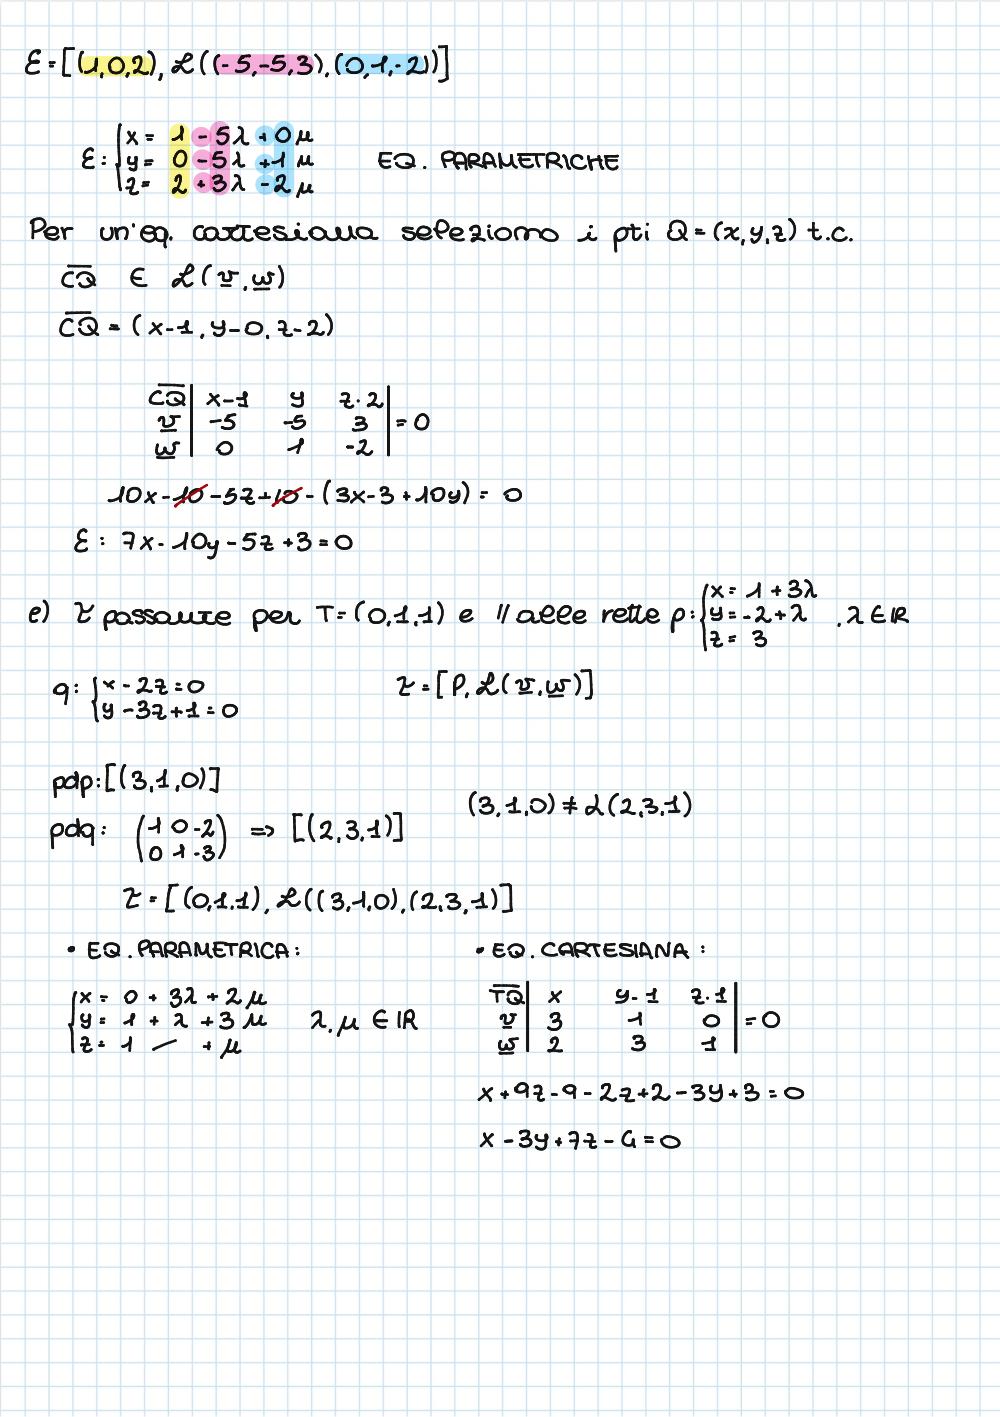 ℰ = [(1,0,2), ℒ((-5,-5,3),(0,1,-2))]
ℰ: { x = 1 - 5λ + 0μ
y = 0 - 5λ + 1μ EQ. PARAMETRICHE
z = 2 + 3λ - 2μ
Per un'eq. cartesiana seleziono i pti Q = (x,y,z) t.c.
CQ ∈ ℒ(v,w)
CQ = (x-1, y-0, z-2)
CQ | x-1 y z-2 |
v | -5 -5 3 | = 0
w | 0 1 -2 |
10x - 10 - 5z + 10 - (3x - 3 + 10y) = 0
ℰ: 7x - 10y - 5z + 3 = 0
e) τ passante per T = (0,1,1) e // alle rette p: { x = 1 + 3λ
y = -2 + λ , λ ∈ ℝ
z = 3
q: { x - 2z = 0
y - 3z + 1 = 0
τ = [P, ℒ(v,w)]
pdp: [(3,1,0)]
(3,1,0) ≠ ℒ(2,3,1)
pdq: (1 0 -2) => [(2,3,1)]
(0 1 -3)
τ = [(0,1,1), ℒ((3,1,0),(2,3,1)]
• EQ. PARAMETRICA:
{ x = 0 + 3λ + 2μ
y = 1 + λ + 3μ λ, μ ∈ ℝ
z = 1 — + μ
• EQ. CARTESIANA:
TQ | x y-1 z-1 |
v | 3 1 0 | = 0
w | 2 3 1 |
x + 9z - 9 - 2z + 2 - 3y + 3 = 0
x - 3y + 7z - 4 = 0